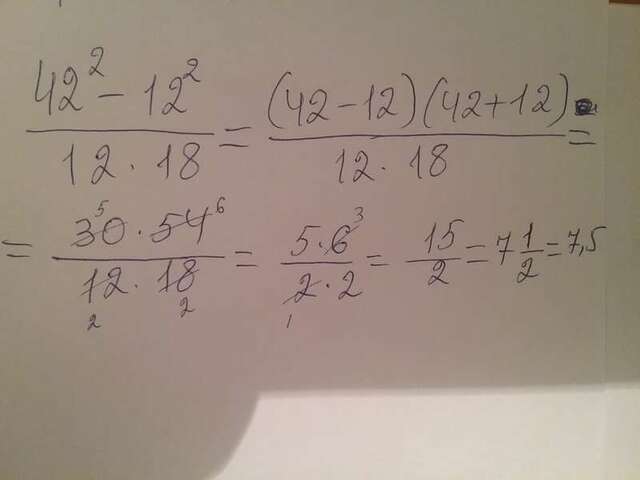 (42² - 12²)/(12 · 18) = ((42 - 12)(42 + 12))/(12 · 18) =
= (30 · 54)/(12 · 18) = (5 · 6)/(2 · 2) = 15/2 = 7 1/2 = 7,5